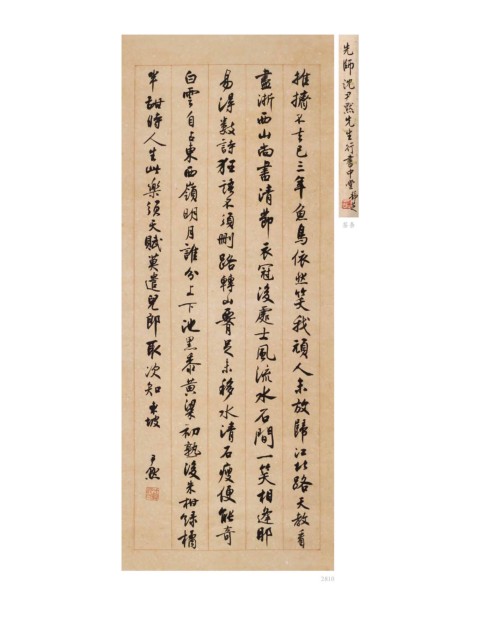 先師沈尹默先生行書中堂
推擠不去已三年魚鳥依然笑我頑人未放歸江北路天教看
盡浙西山尚書清節衣冠後處士風流水石間一笑相逢那
易得數詩狂語不須刪路轉山腰足未移水清石瘦便能奇
白雲自占東西嶺明月誰分上下池黑黍黃粱初熟後朱柑綠橘
半甜時人生此樂須天賦莫遣兒郎取次知 東坡
尹默
签条
2810